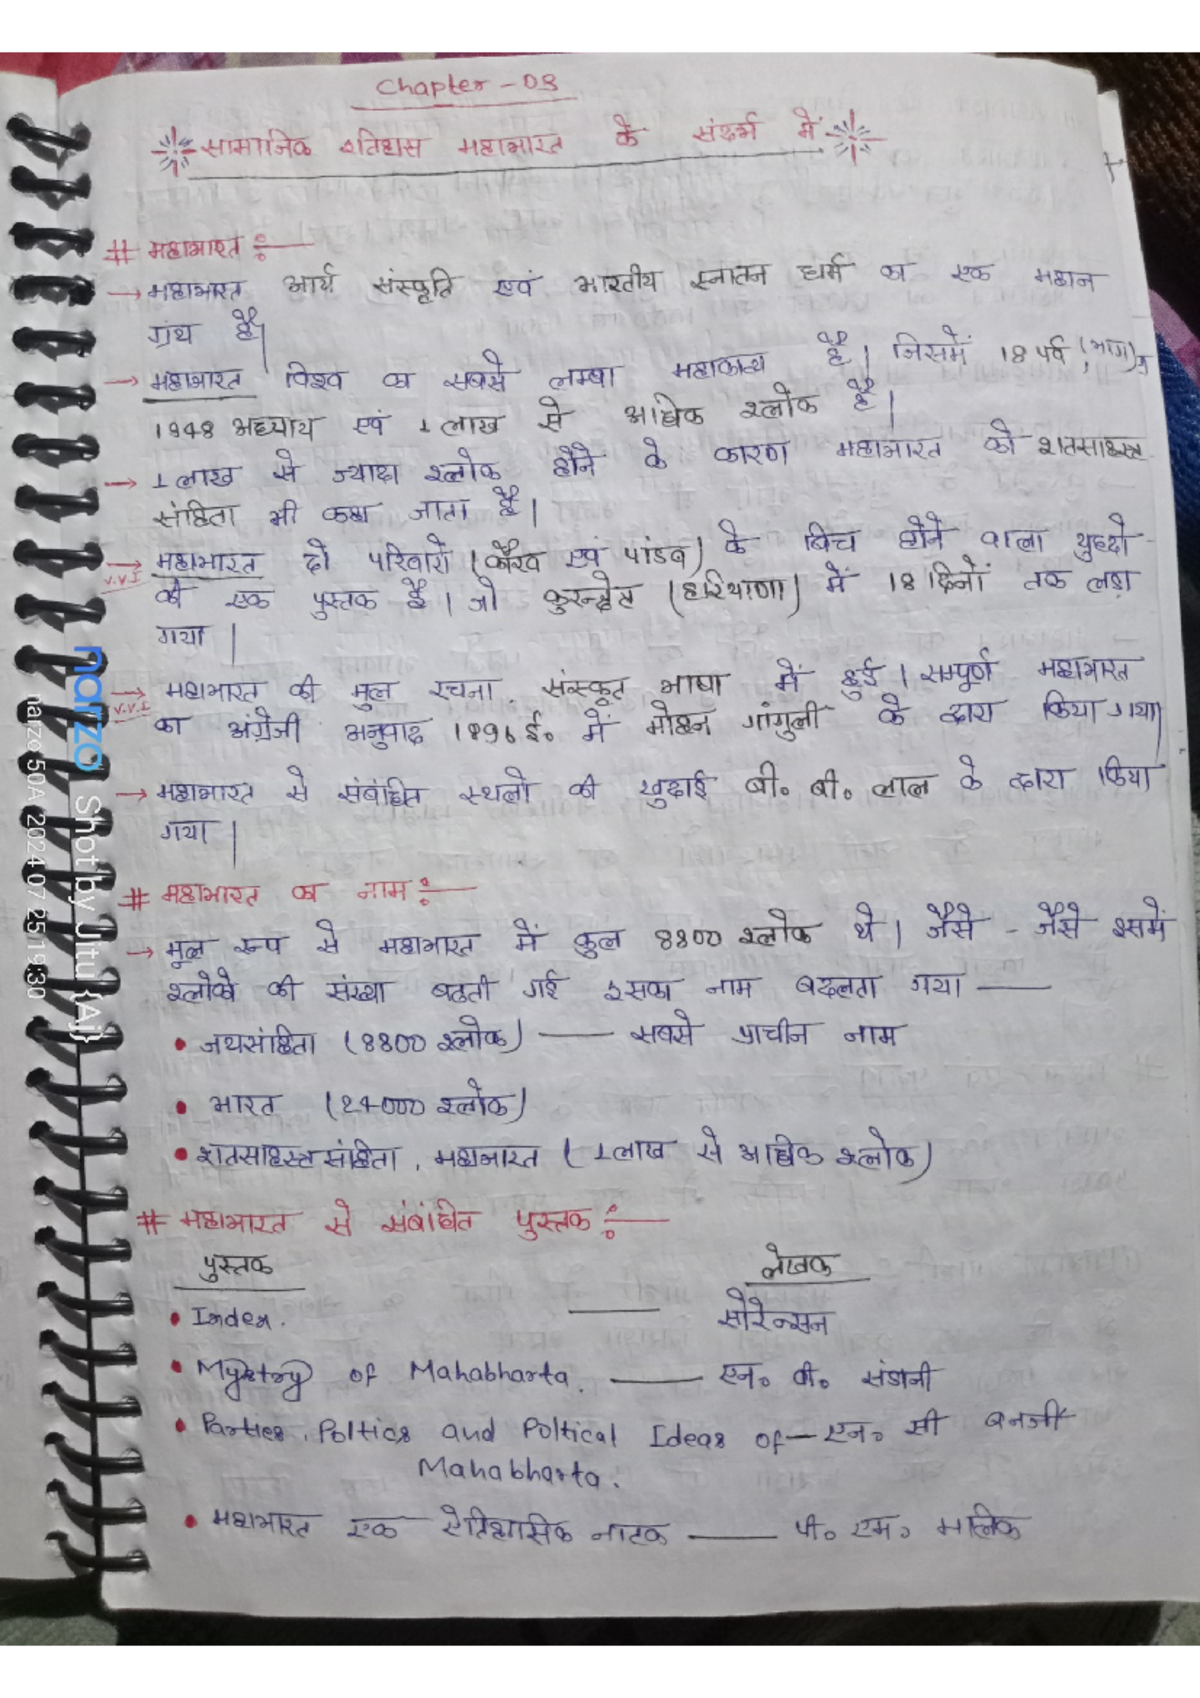 Chapter - 03
सामाजिक इतिहास महाभारत के संदर्भ में
# महाभारत :—
→ महाभारत आर्य संस्कृति एवं भारतीय स्नातन धर्म का एक महान
ग्रंथ है|
→ महाभारत विश्व का सबसे लम्बा महाकाव्य है| जिसमें 18 पर्व, (भाग),
1948 अध्याय एवं 1 लाख से अधिक श्लोक है|
→ 1 लाख से ज्यादा श्लोक होने के कारण महाभारत को शतसाहस्त्र
संहिता भी कहा जाता है|
→ महाभारत दो परिवारो (कौरव एवं पांडव) के बिच होने वाला युद्धो
V.V.I
की एक पुस्तक है| जो कुरुक्षेत्र (हरियाणा) में 18 दिनों तक लड़ा
गया|
→ महाभारत की मुल रचना संस्कृत भाषा में हुई| सम्पूर्ण महाभारत
V.V.I
का अंग्रेजी अनुवाद 1896 ई॰ में मोहन गांगुली के द्वारा किया गया|
→ महाभारत से संबंधित स्थलो की खुदाई बी॰ बी॰ लाल के द्वारा किया
गया|
# महाभारत का नाम :—
→ मूल रूप से महाभारत में कुल 8800 श्लोक थे| जैसे - जैसे इसमें
श्लोको की संख्या बढती गई इसका नाम बदलता गया —
• जयसंहिता (8800 श्लोक) — सबसे प्राचीन नाम
• भारत (24000 श्लोक)
• शतसाहस्त्र संहिता, महाभारत (1 लाख से अधिक श्लोक)
# महाभारत से संबंधित पुस्तक :—
पुस्तक लेखक
• Index. — सोरेन्सन
• Mystry of Mahabharta. — एन॰ वी॰ संडानी
• Parties, Poltics and Poltical Ideas of — एन॰ सी बनर्जी
Mahabharta.
• महाभारत एक ऐतिहासिक नाटक — पी॰ एम॰ मालिक
narzo Shot by Jitu {Aj}
narzo 50A 2024.07.25 19:30